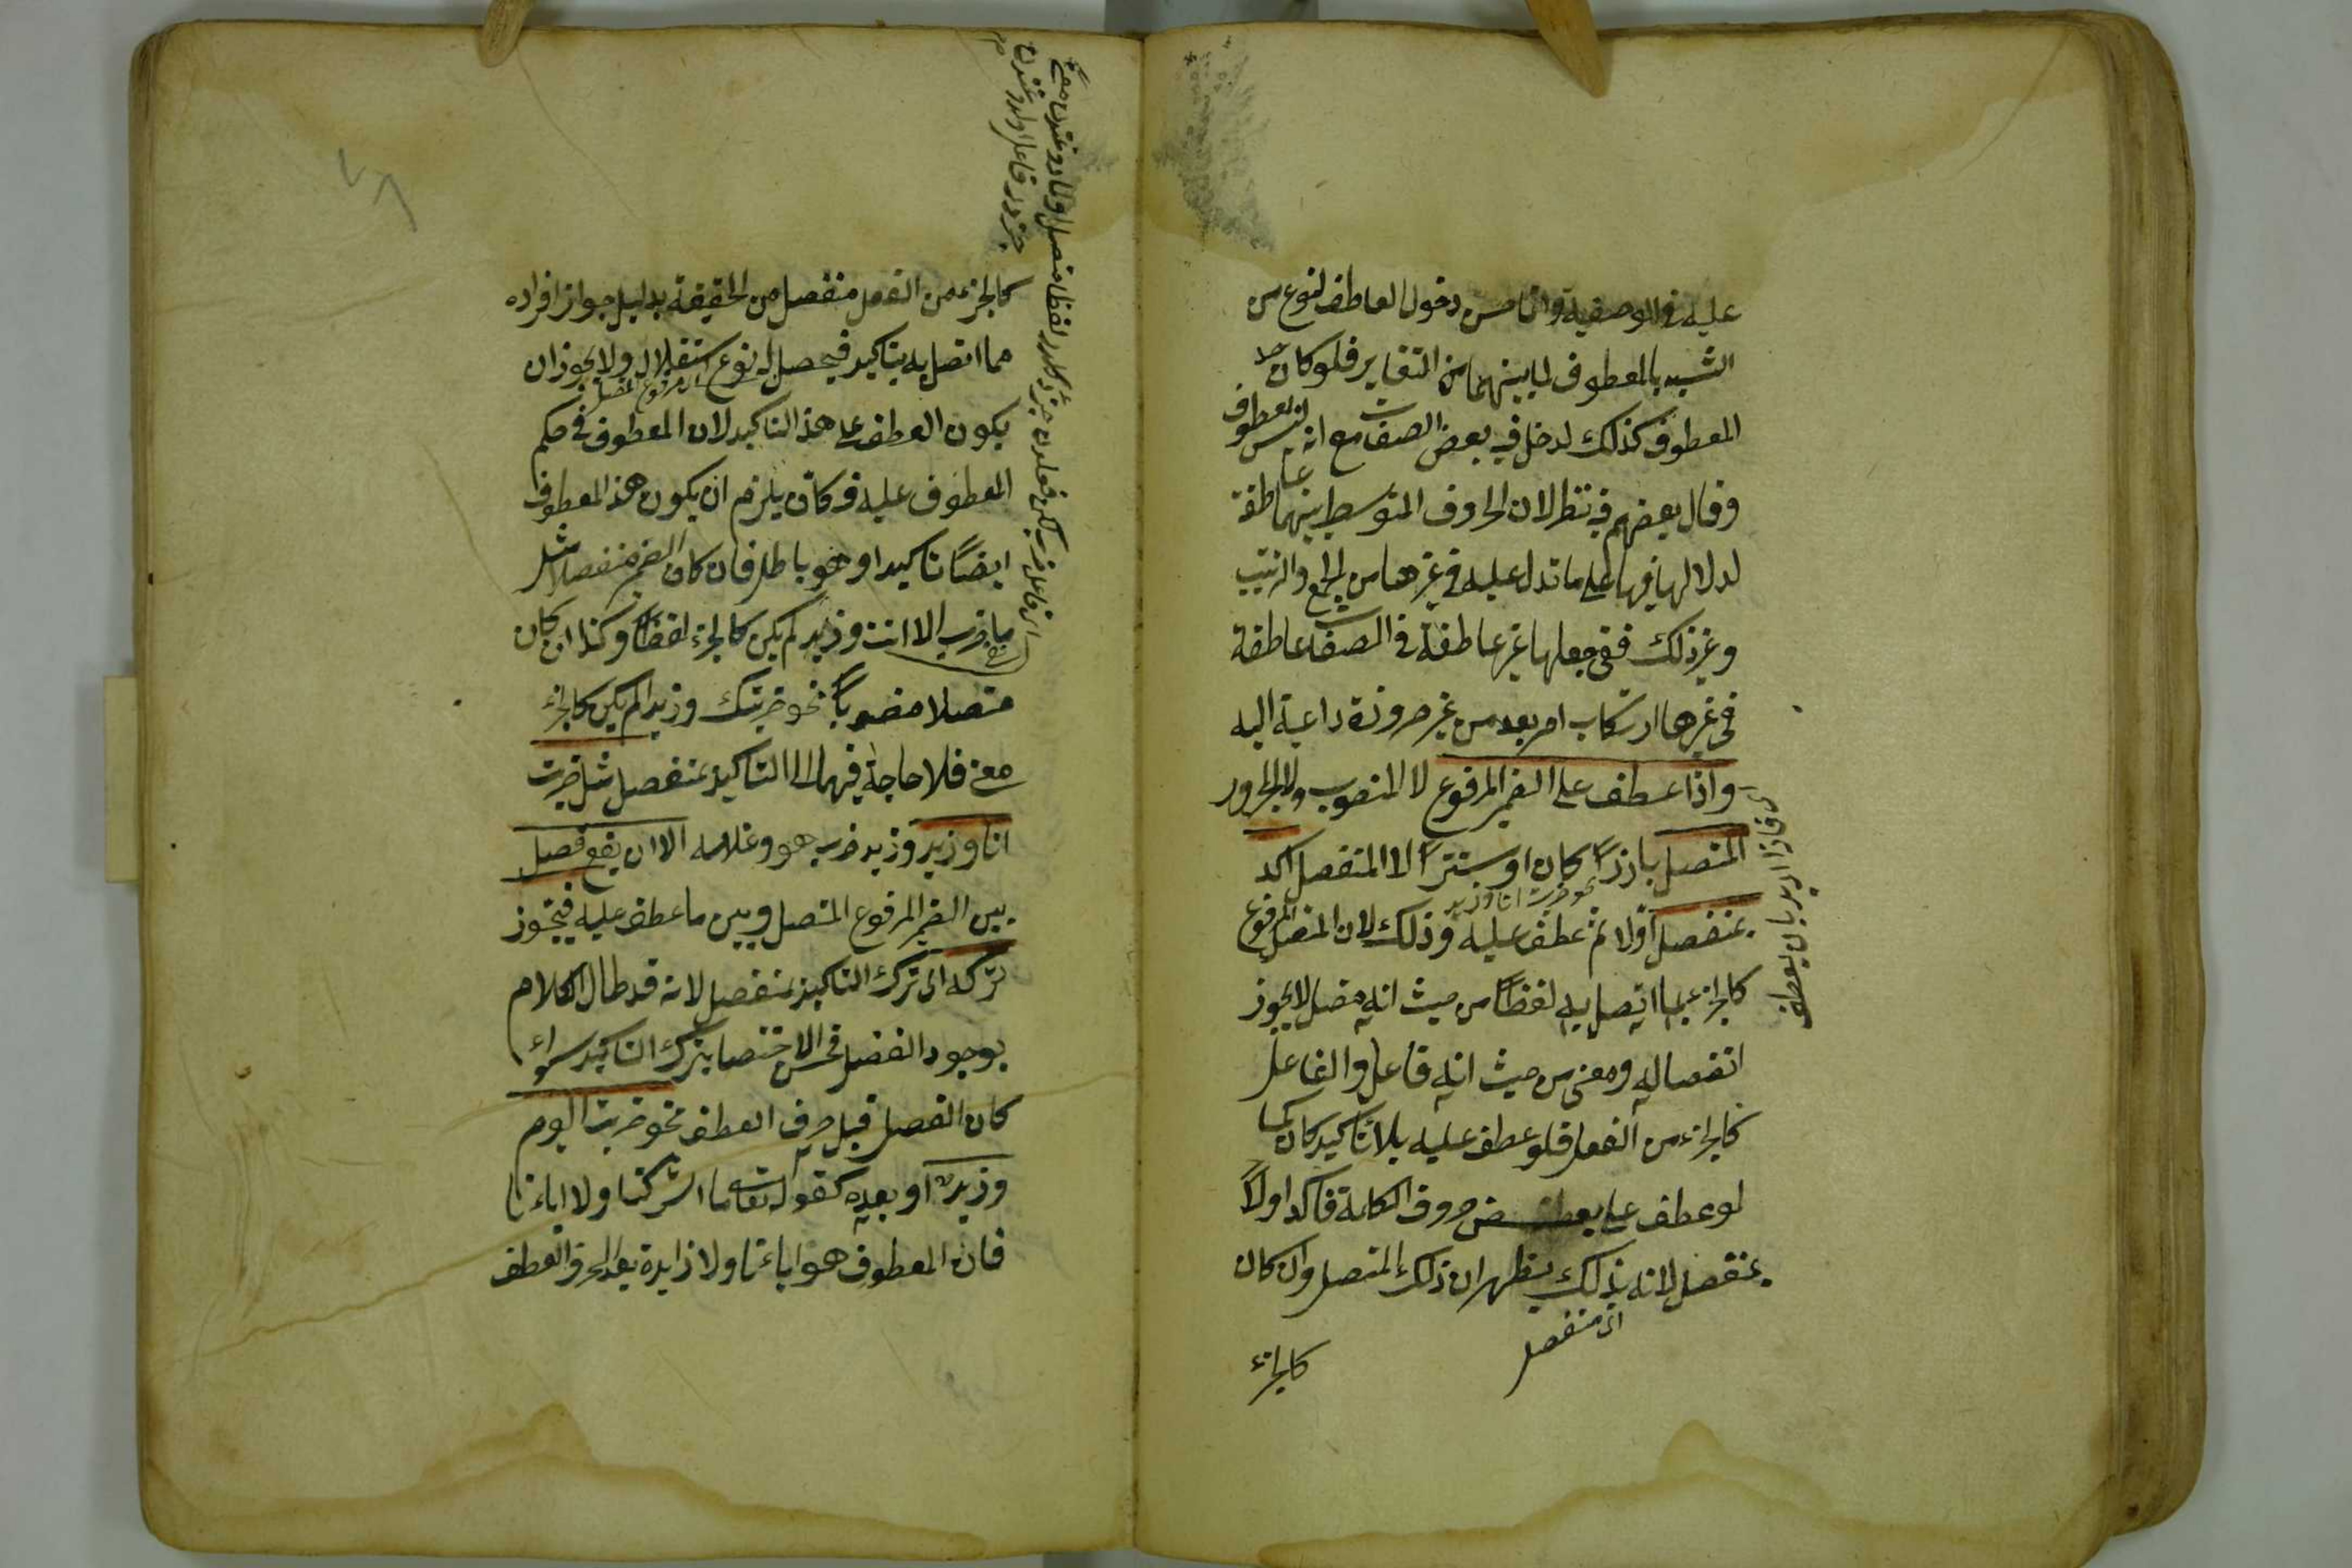 عليه في الوصفية وانما حسن دخول العاطف لنوع من
الشبيه بالمعطوف لما بينهما من التغاير فلو كان حد
المعطوف كذلك لدخل فيه بعض الصفات مع انه ليس بمعطوف
وقال بعضهم فيه نظر لان الحروف المتوسط بينهما عاطفة
لدلالها فيها على ما تدل عليه في غيرها من الجمع والترتيب
وغير ذلك ففي جعلها غير عاطفة في الصفات عاطفة
في غيرها ارتكاب امر بعد من غير ضرورة داعية اليه
واذا عطف على الضمير المرفوع لا المنصوب ولا المجرور
المتصل بارزا كان او مستترا لا المنفصل اكد
نحو ضربت انا وزيد
بمنفصل اولا ثم عطف عليه وذلك لان المتصل المرفوع
كالجزء مما اتصل به لفظا من حيث انه متصل لا يجوز
انفصاله ومعنى من حيث انه فاعل والفاعل
كالجزء من الفعل فلو عطف عليه بلا تاكيد كان كما
لو عطف على بعض حروف الكلمة فاكد اولا
بمنفصل لانه بذلك يظهر ان ذلك المتصل وان كان
اى منفصل
كالجزء
كالجزء من الفعل منفصل من الحقيقة بدليل جواز افراده
مما اتصل به بتاكيد فيحصل له نوع استقلال ولا يجوز ان
يكون العطف على هذا التاكيد لان المعطوف في حكم
المعطوف عليه فكان يلزم ان يكون هذا المعطوف
ايضا تاكيدا وهو باطل فان كان الضمير منفصلا مثل
ما ضرب الا انت وزيد لم يكن كالجزء لفظا وكذا ان كان
متصلا منصوبا نحو ضربتك وزيدا لم يكن كالجزء
معنى فلا حاجة فيهما الى التاكيد بمنفصل مثل ضربت
انا وزيد وزيد ضرب هو وغلامه الا ان يقع فصل
بين الضمير المرفوع المتصل وبين ما عطف عليه فيجوز
تركه اى ترك التاكيد بمنفصل لانه قد طال الكلام
بوجود الفصل فحسن الاختصار بترك التاكيد سواء
كان الفصل قبل حرف العطف نحو ضربت اليوم
وزيد او بعده كقوله تعالى ما اشركنا ولا اباءنا
فان المعطوف هو اباءنا ولا زايدة بعد الحرف العطف